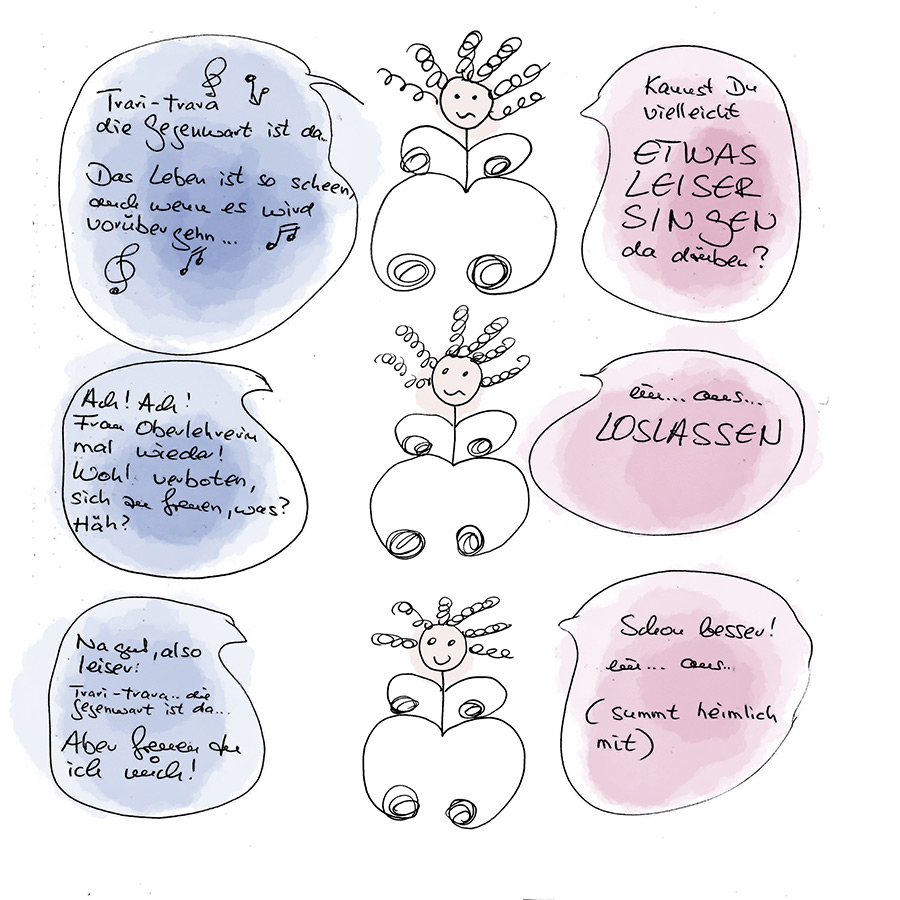 Trari-trara
die Gegenwart ist da...
Das Leben ist so scheen,
auch wenn es wird
vorüber gehn...
Kannst Du
vielleicht
ETWAS
LEISER
SINGEN
da drüben?
Ach! Ach!
Frau Oberlehrerin
mal wieder!
Wohl verboten,
sich zu freuen, was?
Häh?
ein... aus...
LOSLASSEN
Na gut, also
leiser:
Trari-trara.. die
Gegenwart ist da...
Aber freuen tu
ich mich!
Schon besser!
ein... aus..
(summt heimlich
mit)